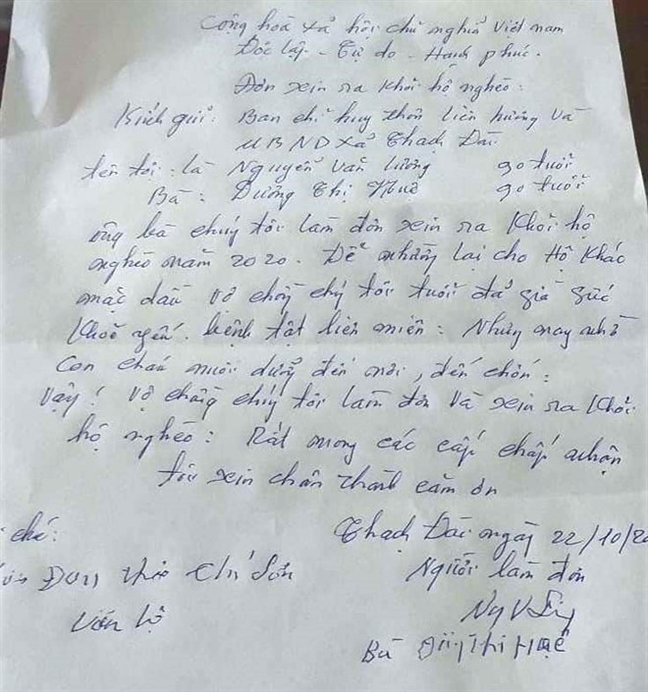 Cộng hoà xả hội chủ nghĩa Việt nam
Độc lập - Tự do - Hạnh phúc.
Đơn xin ra khỏi hộ nghèo:
Kính gửi: Ban chỉ huy thôn liên hương và
UBND xả Thạch Đài
tên tôi: là Nguyễn Văn Lương 90 tuổi
Bà: Dương Thị Huê 90 tuổi
ông bà chúng tôi làm đơn xin ra khỏi hộ
nghèo năm 2020. Để nhường lại cho Hộ khác
mặc dầu vợ chồng chúng tôi tuổi đả già sức
khoẻ yếu. bệnh tật liên miên: Nhưng may nhờ
con cháu nuôi dưỡng đến nơi, đến chốn:
Vậy! vợ chồng chúng tôi làm đơn và xin ra khỏi
hộ nghèo: Rất mong các cấp chấp nhận
tôi xin chân thành cảm ơn
Thạch Đài ngày 22/10/20
chú:
Đơn Người làm đơn
Bà Huệ